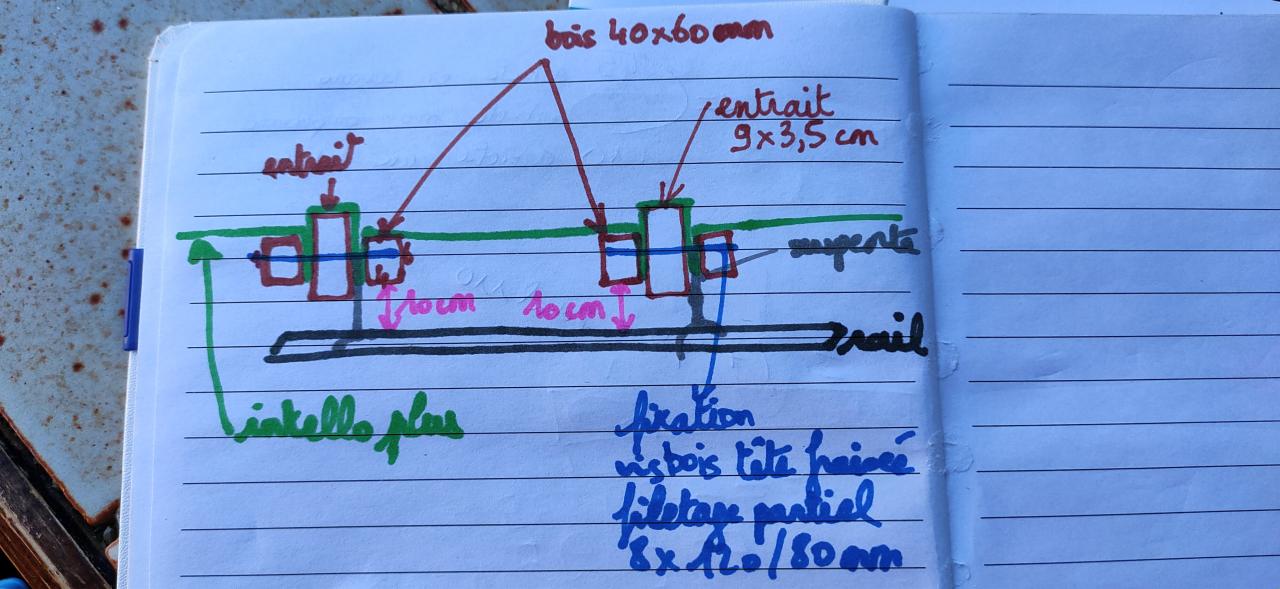 bois 40x60mm
entrait
9x3,5cm
entrait
suspente
10cm
10cm
rail
intello plus
fixation
vis bois tête fraisé
filetage partiel
8x120/80mm